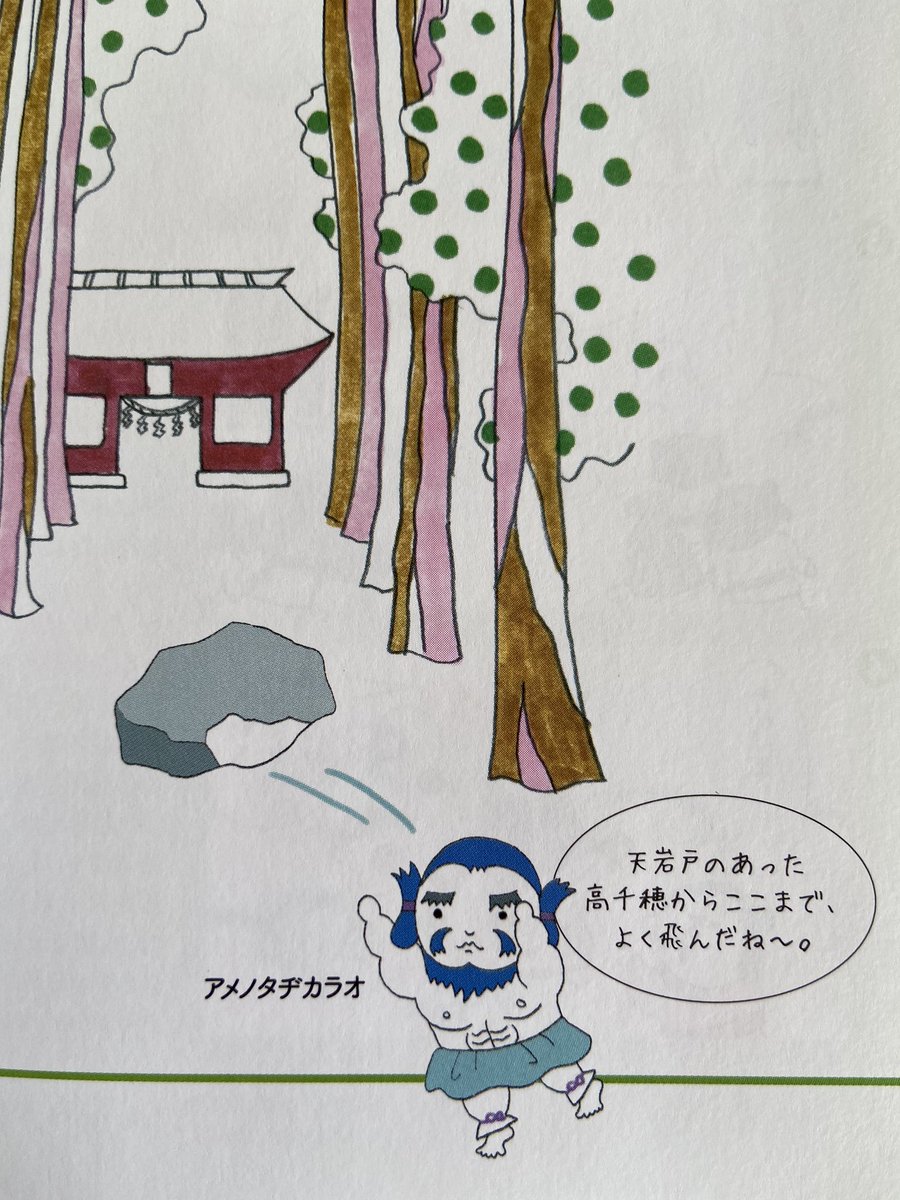 天岩戸のあった
高千穂からここまで、
よく飛んだね〜。
アメノタヂカラオ